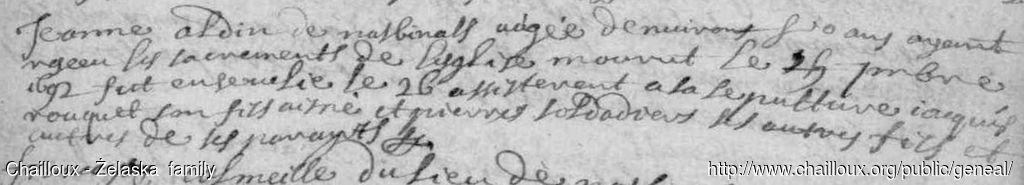 Jeanne aldin de nalbinals aâgée denuiron 80 ans ayant
receu les sacrements de leglise mourut le 25 jmbre
1692 fut enseuelie le 26 assisterent a la sepulture iacques
rouquet son fils aisné et pierres soldadiers ses autres fils et
autres de ses parants
Chailloux - Żelaska family
http://www.chailloux.org/public/geneal/
du lieu de